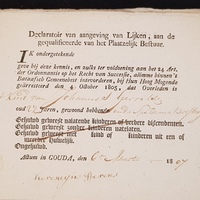 Declaratoir van aangeving van Lijken, aan de
gequalificeerde van het Plaatzelyk Bestuur.
IK ondergetekende
geev bij deze kennis, en zulks ter voldoening aan het 24 Art.
der Ordonnantie op het Recht van Successie, alomme binnen 't
Bataafsch Gemeenebest intevorderen, bij Hun Hoog Mogende
gearresteerd den 4 Octoher 1805, dat Overleden is
Kind van Johannes
oud Jaren, gewoond hebbende
Gehuwd geweest nalatende kinderen of verdere descendenten.
Gehuwd geweest zonder kinderen natelaten.
Gehuwd geweest met kind of kinderen uit een of
meerder Huwelijk.
Ongehuwd.
Actum in GOUDA, den 6 Maart 1807